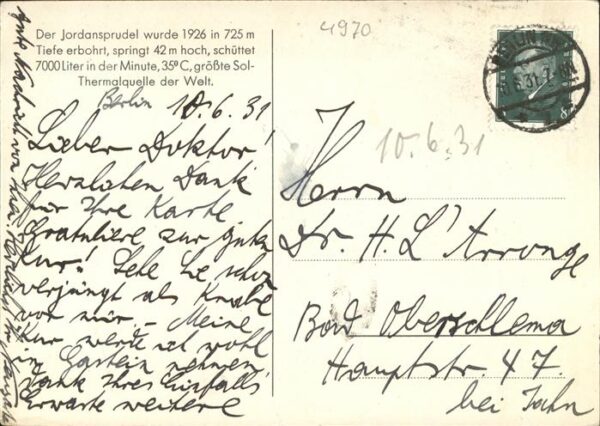 Der Jordansprudel wurde 1926 in 725 m
Tiefe erbohrt, springt 42 m hoch, schüttet
7000 Liter in der Minute, 35°C, größte Sol-
Thermalquelle der Welt.
Berlin 10.6.31
Lieber Doktor!
Herzlichen Dank
für Ihre Karte
Gratuliere zur guten
Kur! Sehe Sie schon
verjüngt als Knabe
vor mir – Meine
Kur werde ich wohl
in Gastein nehmen.
Dank Ihres Einfalls
Erwarte weitere
gute Nachricht von Ihnen. Herzlichst Ihr
4970
10.6.31
Herrn
Dr. H. L'Arronge
Bad Oberschlema
Hauptstr. 47.
bei Jahn
BERLIN
10.6.31.7-8N
8